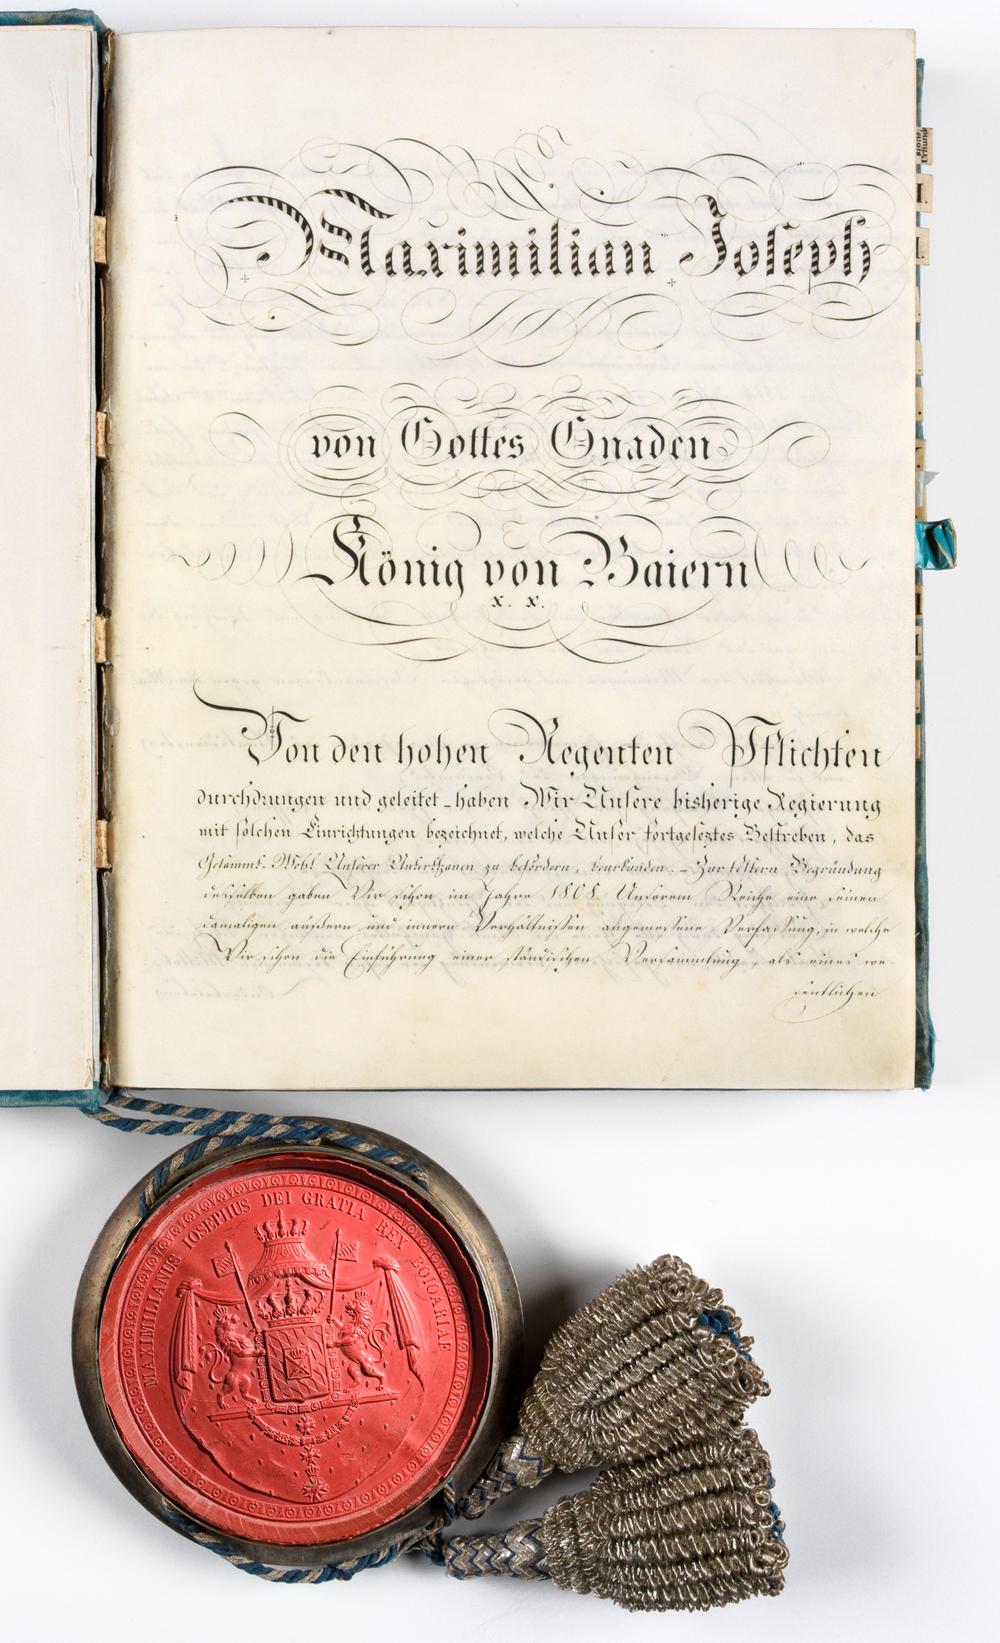 Maximilian Joseph
von Gottes Gnaden
König von Baiern
x. x.
Von den hohen Regenten Pflichten
durchdrungen und geleitet - haben Wir Unsere bisherige Regierung
mit solchen Einrichtungen bezeichnet, welche Unser fortgeseztes Bestreben, das
Gesammt-Wohl Unserer Unterthanen zu befördern, beurkunden. - Zur festern Begründung
desselben gaben Wir schon im Jahre 1808 Unserem Reiche eine seinen
damaligen äußern und innern Verhältnissen angemessene Verfassung, in welche
Wir schon die Einführung einer ständischen Versammlung, als eines we-
sentlichen
MAXIMILIANUS IOSEPHUS DEI GRATIA REX BOIOARIAE